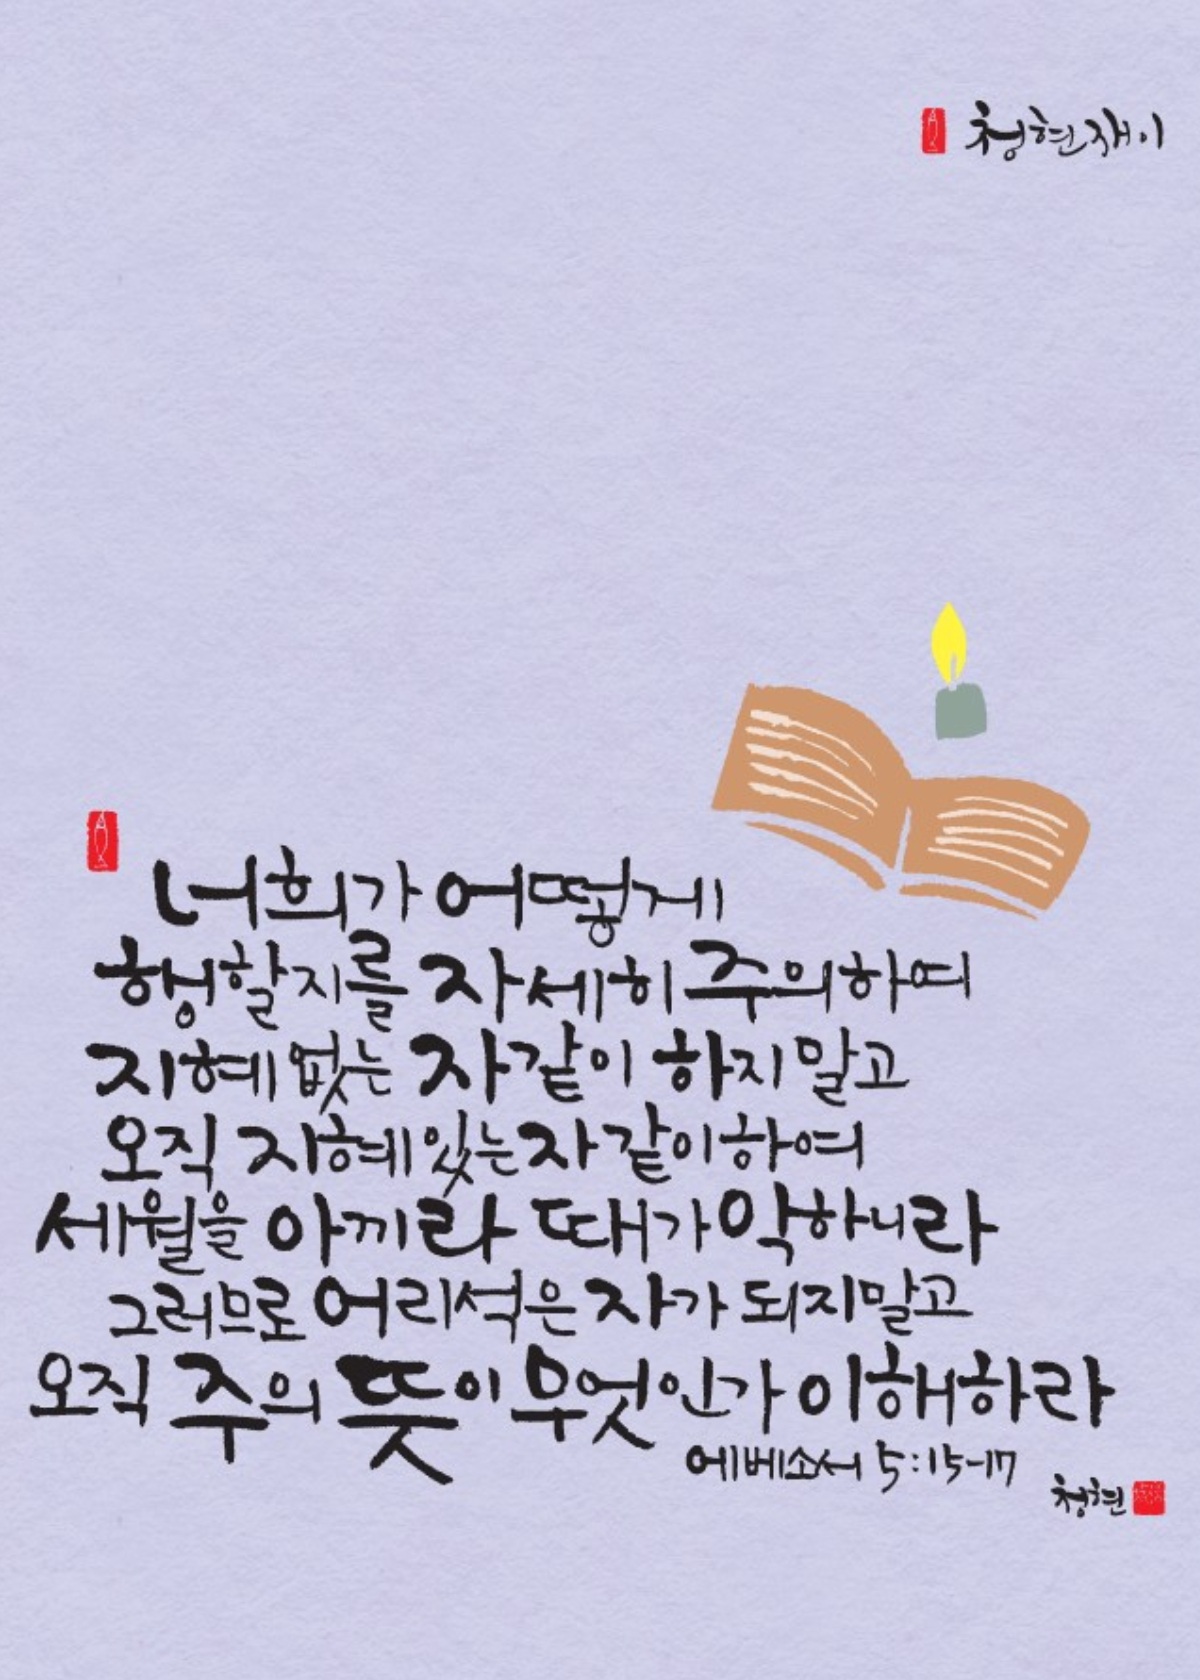 청현재이
너희가 어떻게
행할지를 자세히 주의하여
지혜 없는 자같이 하지 말고
오직 지혜 있는 자같이 하여
세월을 아끼라 때가 악하니라
그러므로 어리석은 자가 되지 말고
오직 주의 뜻이 무엇인가 이해하라
에베소서 5:15-17
청현